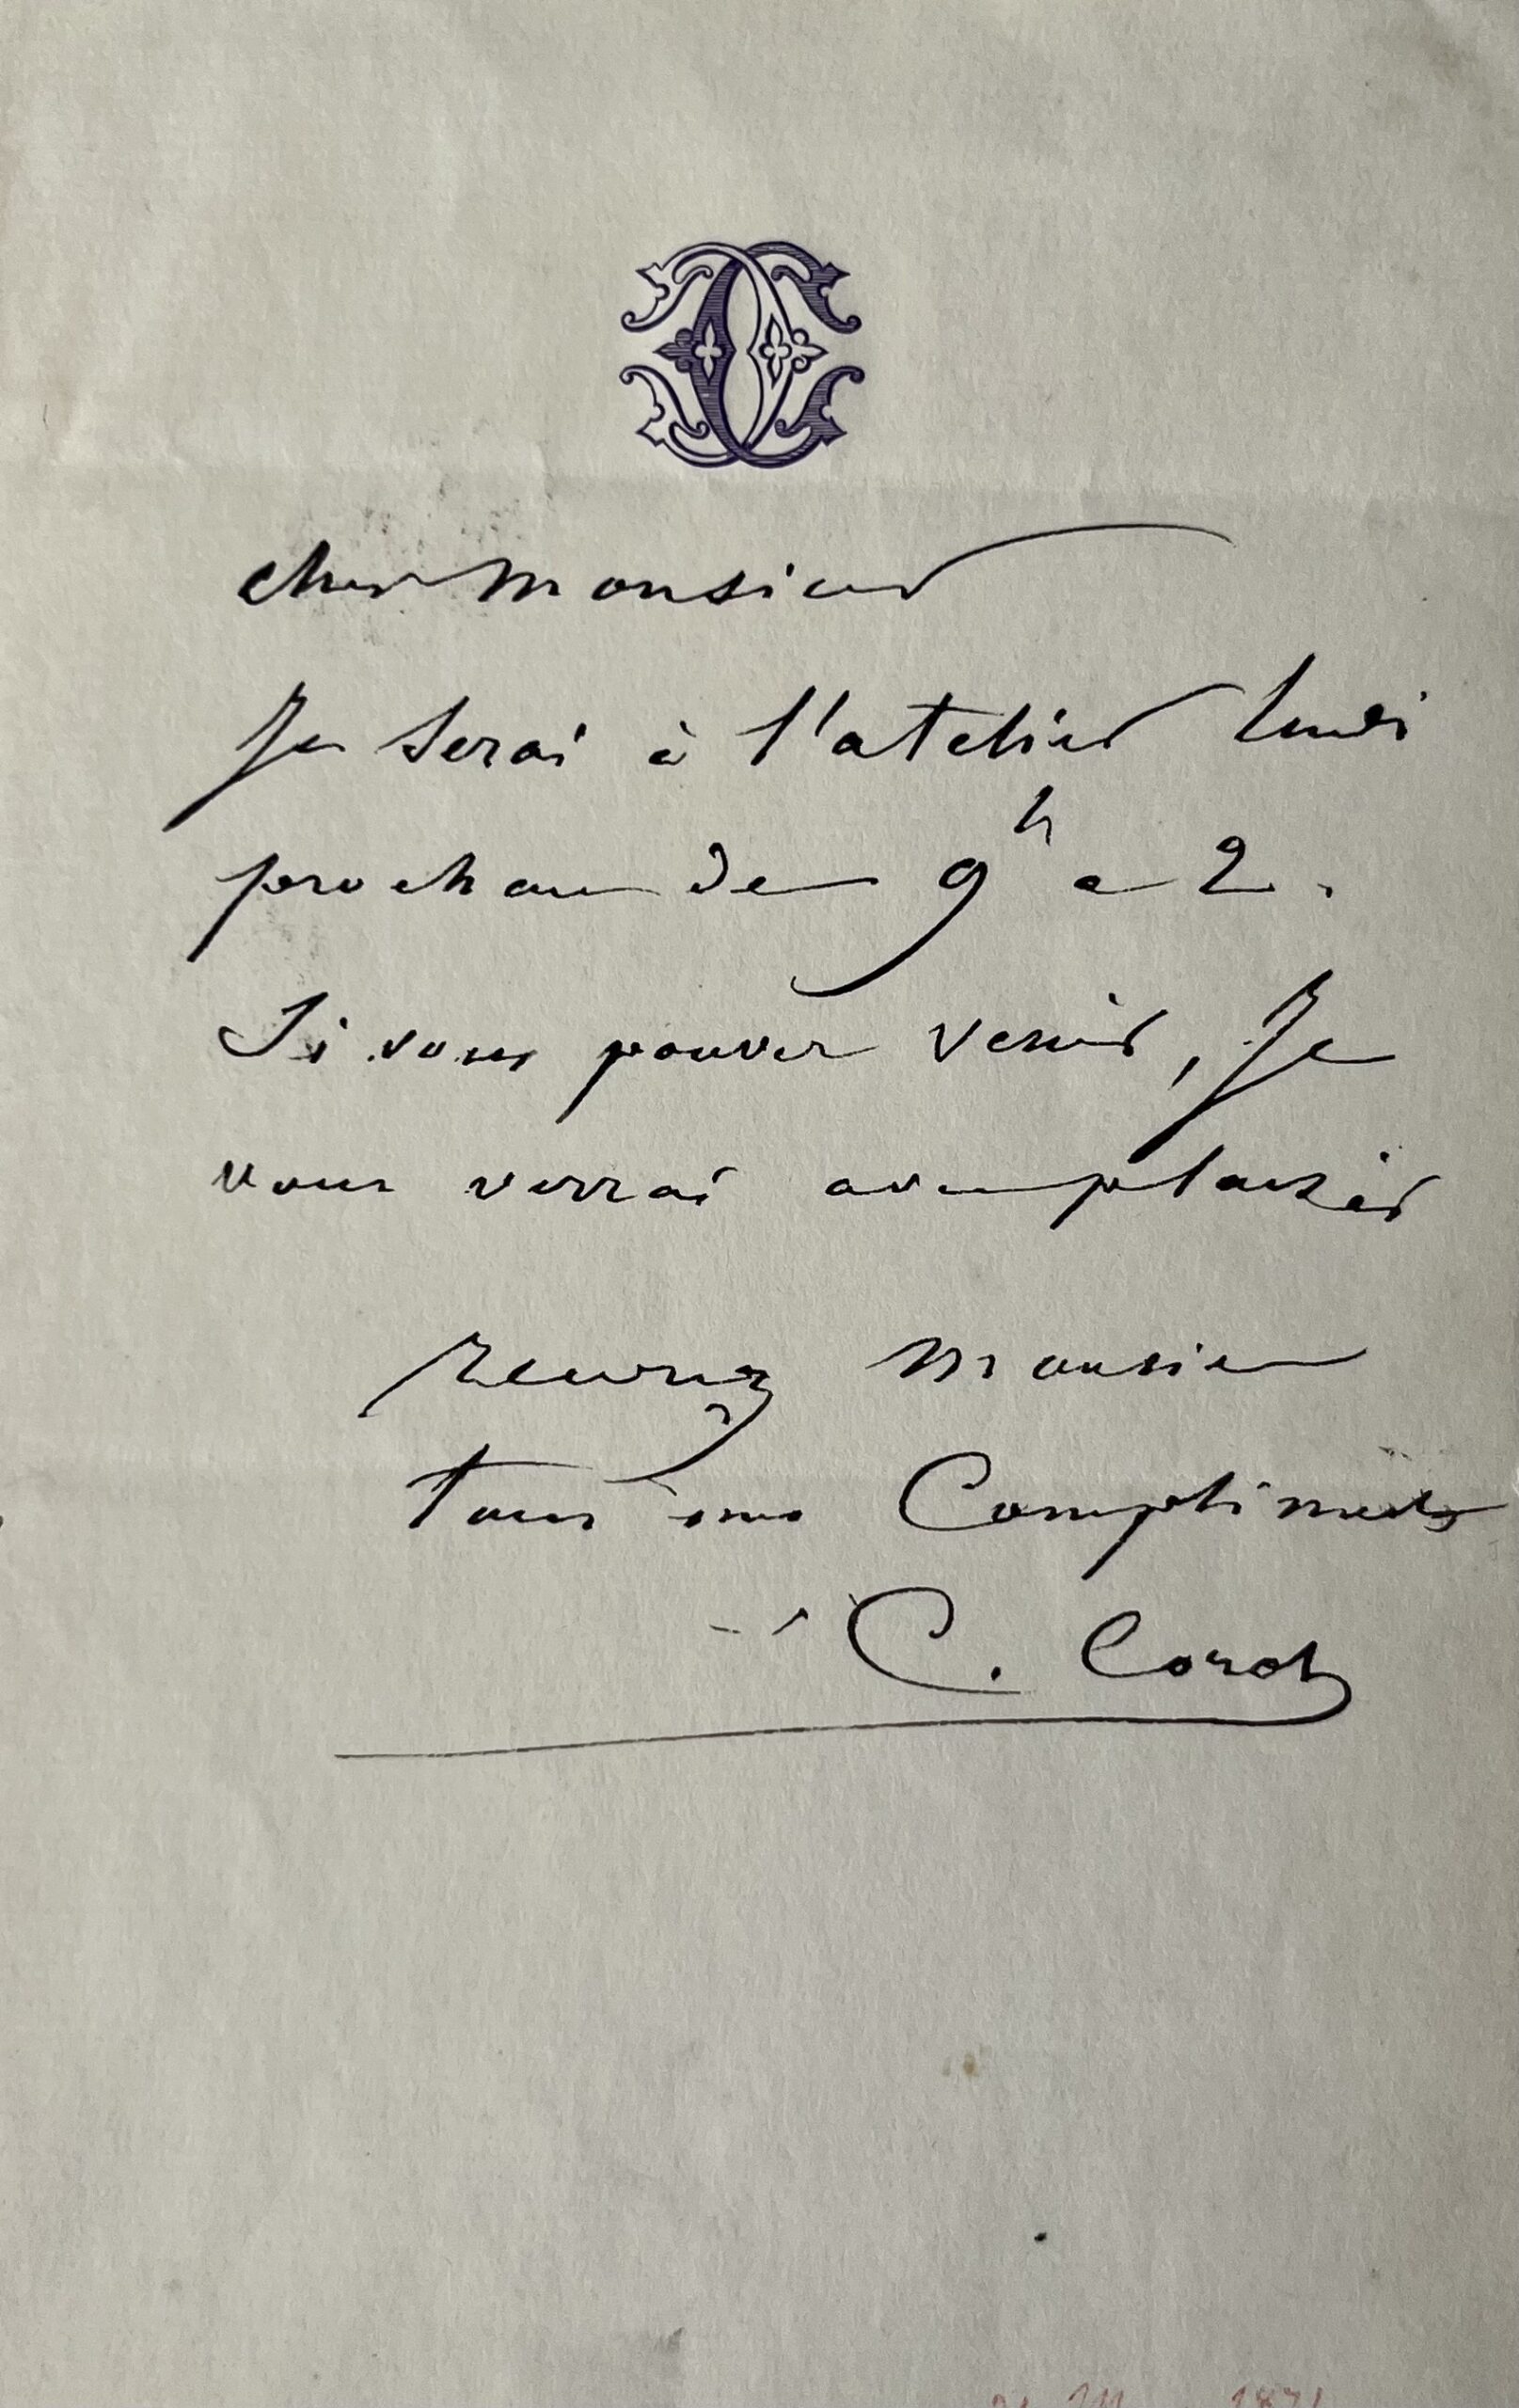 CC
Cher Monsieur
Je serai à l'atelier lundi
prochain de 9h a 2.
Si vous pouvez venir, Je
vous verrai avec plaisir
recevez Monsieur
tous mes Compliments
C. Corot
1871